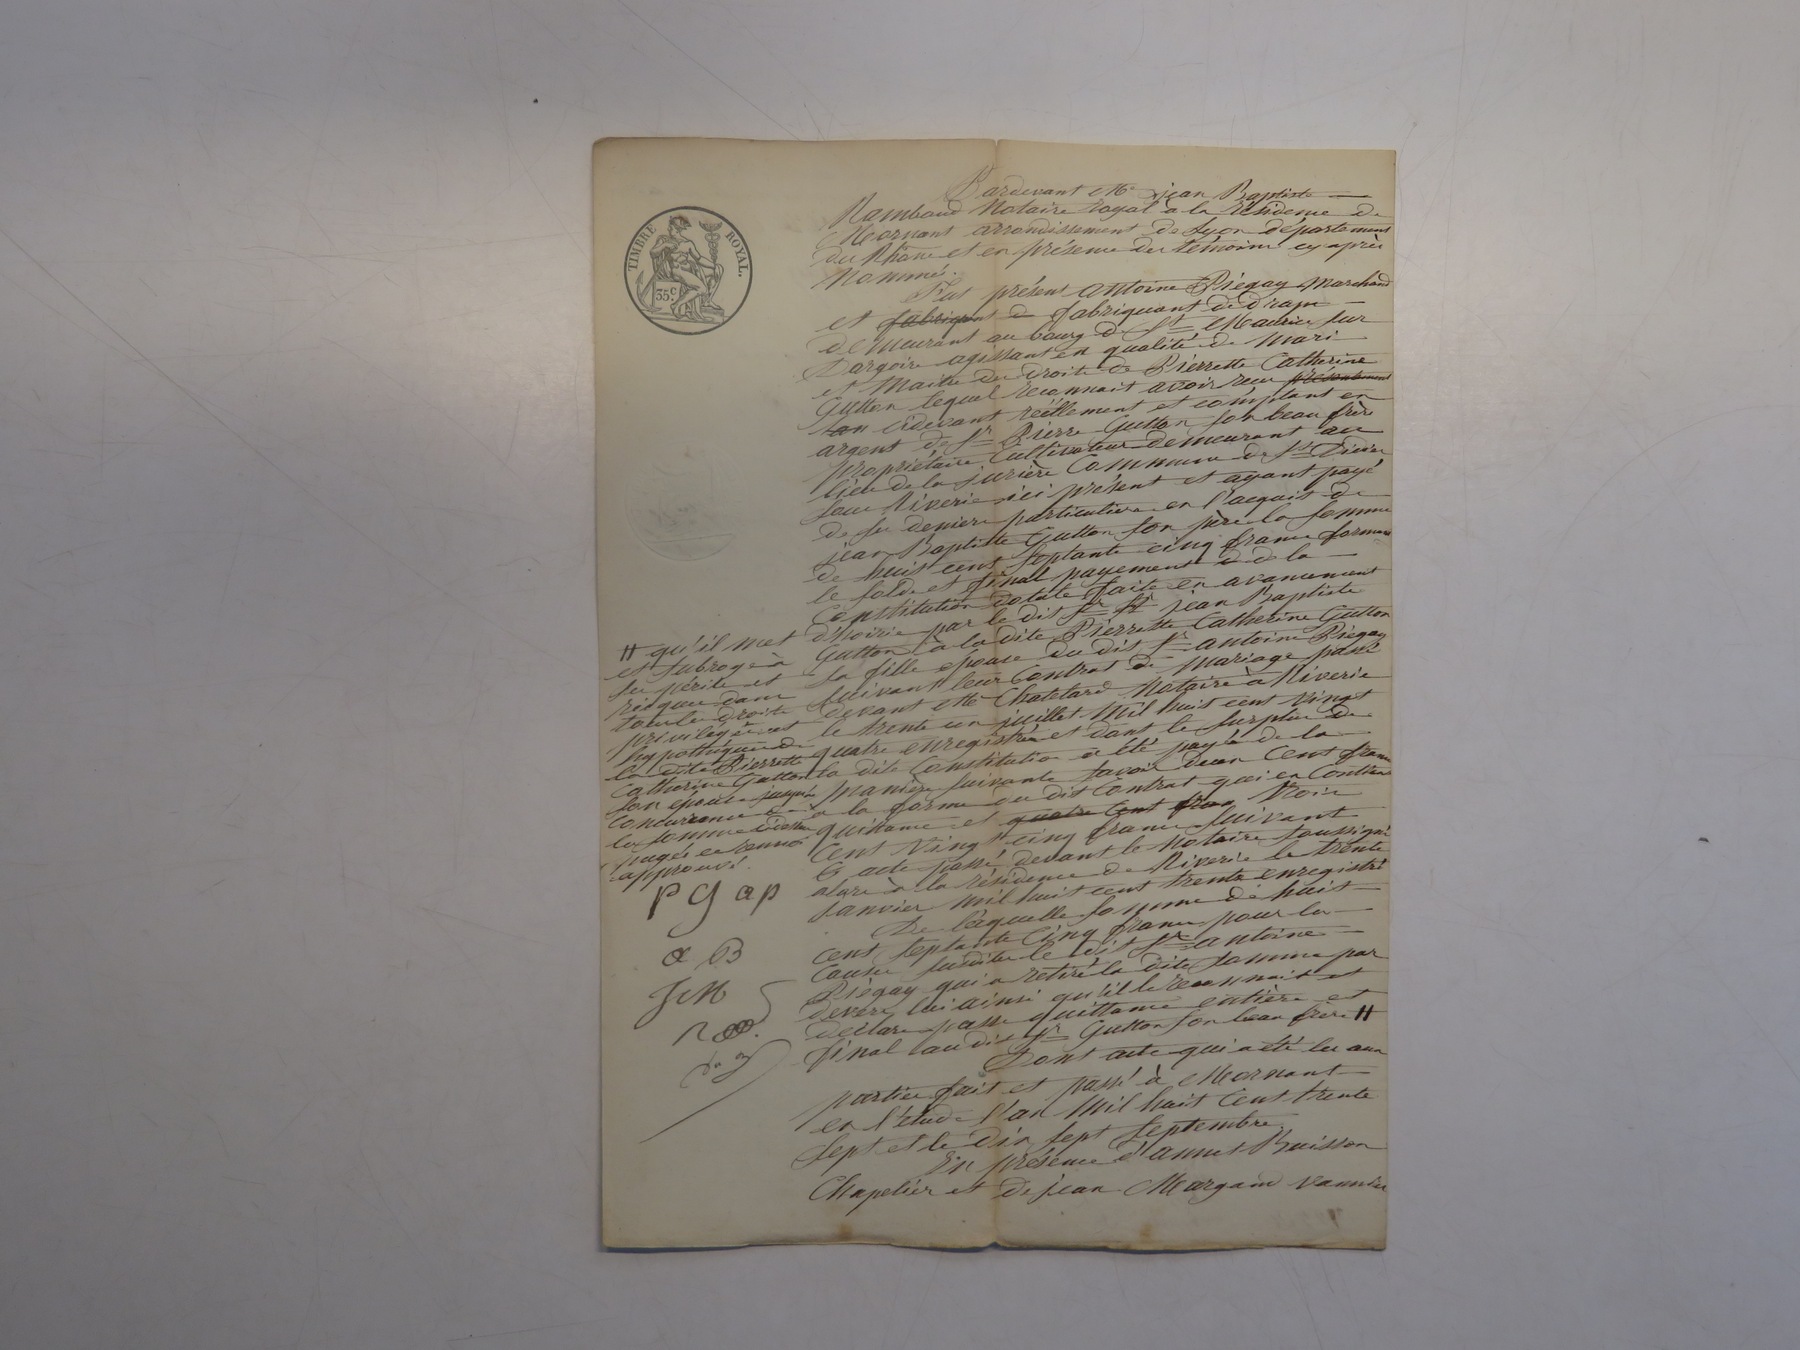 TIMBRE ROYAL.
35c
Pardevant Me jean Baptiste
Rambaud Notaire royal à la résidence de
Mornant arrondissement de Lyon département
du Rhône et en présence des témoins cy après
Nommés.
Fut présent antoine Piégay Marchand
et fabriquant de fabriquant de draps
demeurant au bourg de St Maurice sur
Dargoire agissant en qualité de Mari
et Maitre des droits de Pierrette Catherine
Gutton lequel reconnait avoir reçu présentement
cidevant réellement et comptant en
argent de Sr Pierre Gutton son beau frère
propriétaire Cultivateur demeurant au
lieu de la Commune de St Didier
sous Riverie ici présent et ayant payé
de ses deniers particuliers en l'acquit de
jean Baptiste Gutton son père la somme
de huit cent septante cinq francs formant
le solde et final payement de la
Constitution dotale faite en avancement
d'hoirie par le dit Sr jean Baptiste
Gutton à la dite Pierrette Catherine Gutton
sa fille épouse du dit Sr antoine Piégay
suivant leur Contrat de mariage passé
devant Me Chatelard Notaire à Riverie
le trente un juillet Mil huit cent vingt
quatre enregistré et dans le surplus de
la dite Constitution a été payée de la
manière suivante savoir deux Cent francs
à la forme du dit Contrat qui en Contient
quittance et quatre Cent fran Trois
Cent Vingt cinq francs suivant
acte passé devant le Notaire soussigné
alors à la résidence de Riverie le trente
Janvier Mil huit cent trente enregistré
De laquelle somme de huit
cent septante Cinq francs pour la
Cause susdite le dit Sr antoine
Piégay qui a retiré la dite somme par
devers lui ainsi qu'il le reconnait et
déclare passe quittance entière et
final au dit Sr Gutton son beau frère #
Dont acte qui a été lu aux
parties fait et passé à Mornant
en l'étude l'an Mil huit Cent trente
Sept et le Dix sept Septembre
En présence d'annet Buisson
Chapelier et de jean Margand vannier
# qu'il met
et subroge à
ses périls et
risques dans
tous les droits
privilèges et
hypothèques de
la dite Pierrette
Catherine Gutton
son épouse jusqu'à
Concurrence de
la somme cidessus
payée en renvoi
approuvé.
P G ap
a B
J M